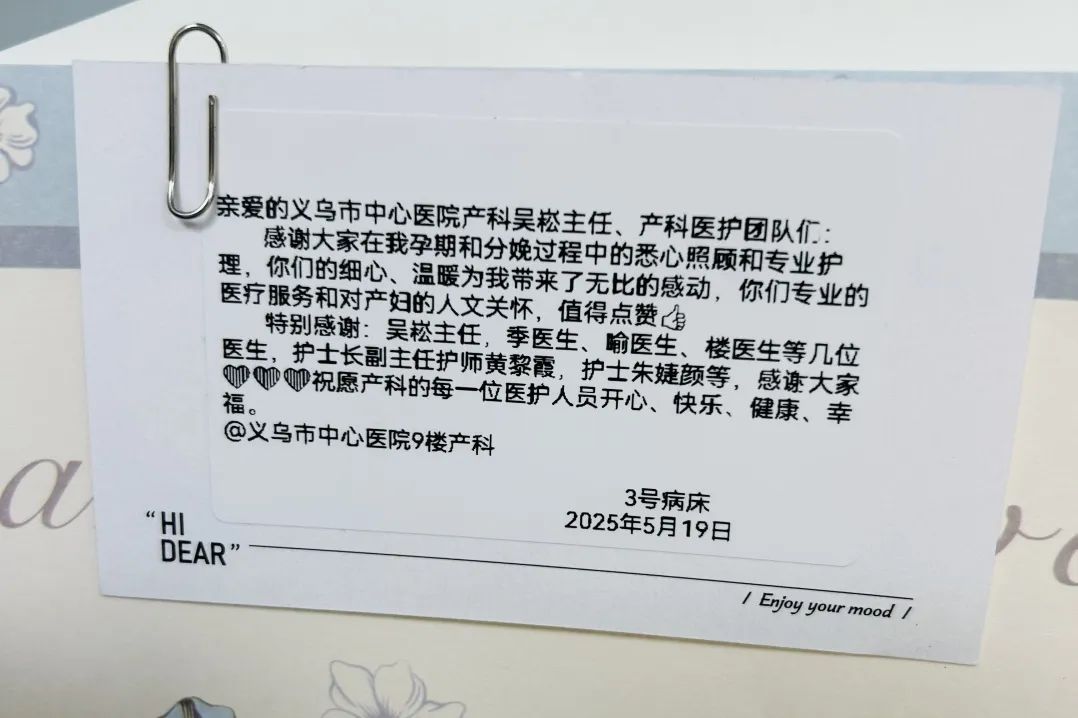 亲爱的义乌市中心医院产科吴崧主任、产科医护团队们：
感谢大家在我孕期和分娩过程中的悉心照顾和专业护
理，你们的细心、温暖为我带来了无比的感动，你们专业的
医疗服务和对产妇的人文关怀，值得点赞👍
特别感谢：吴崧主任，季医生、喻医生、楼医生等几位
医生，护士长副主任护师黄黎霞，护士朱婕颜等，感谢大家
♥♥♥祝愿产科的每一位医护人员开心、快乐、健康、幸
福。
@义乌市中心医院9楼产科
3号病床
2025年5月19日
“HI
DEAR”
/ Enjoy your mood /